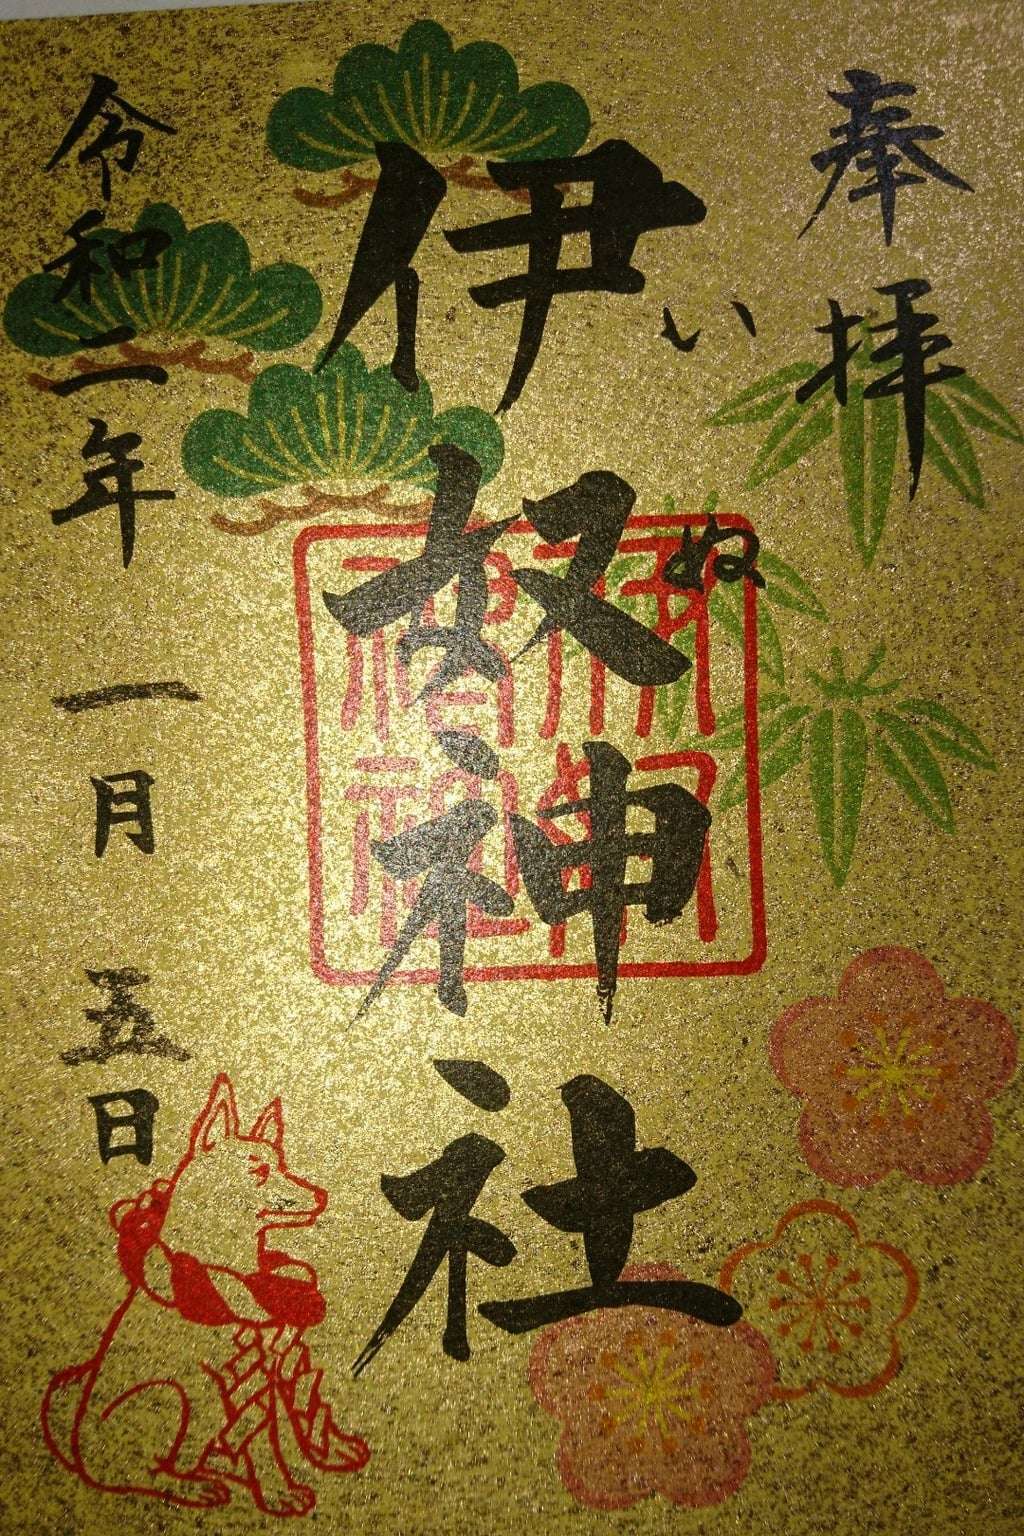 奉拝
いぬ
伊奴神社
令和二年一月五日